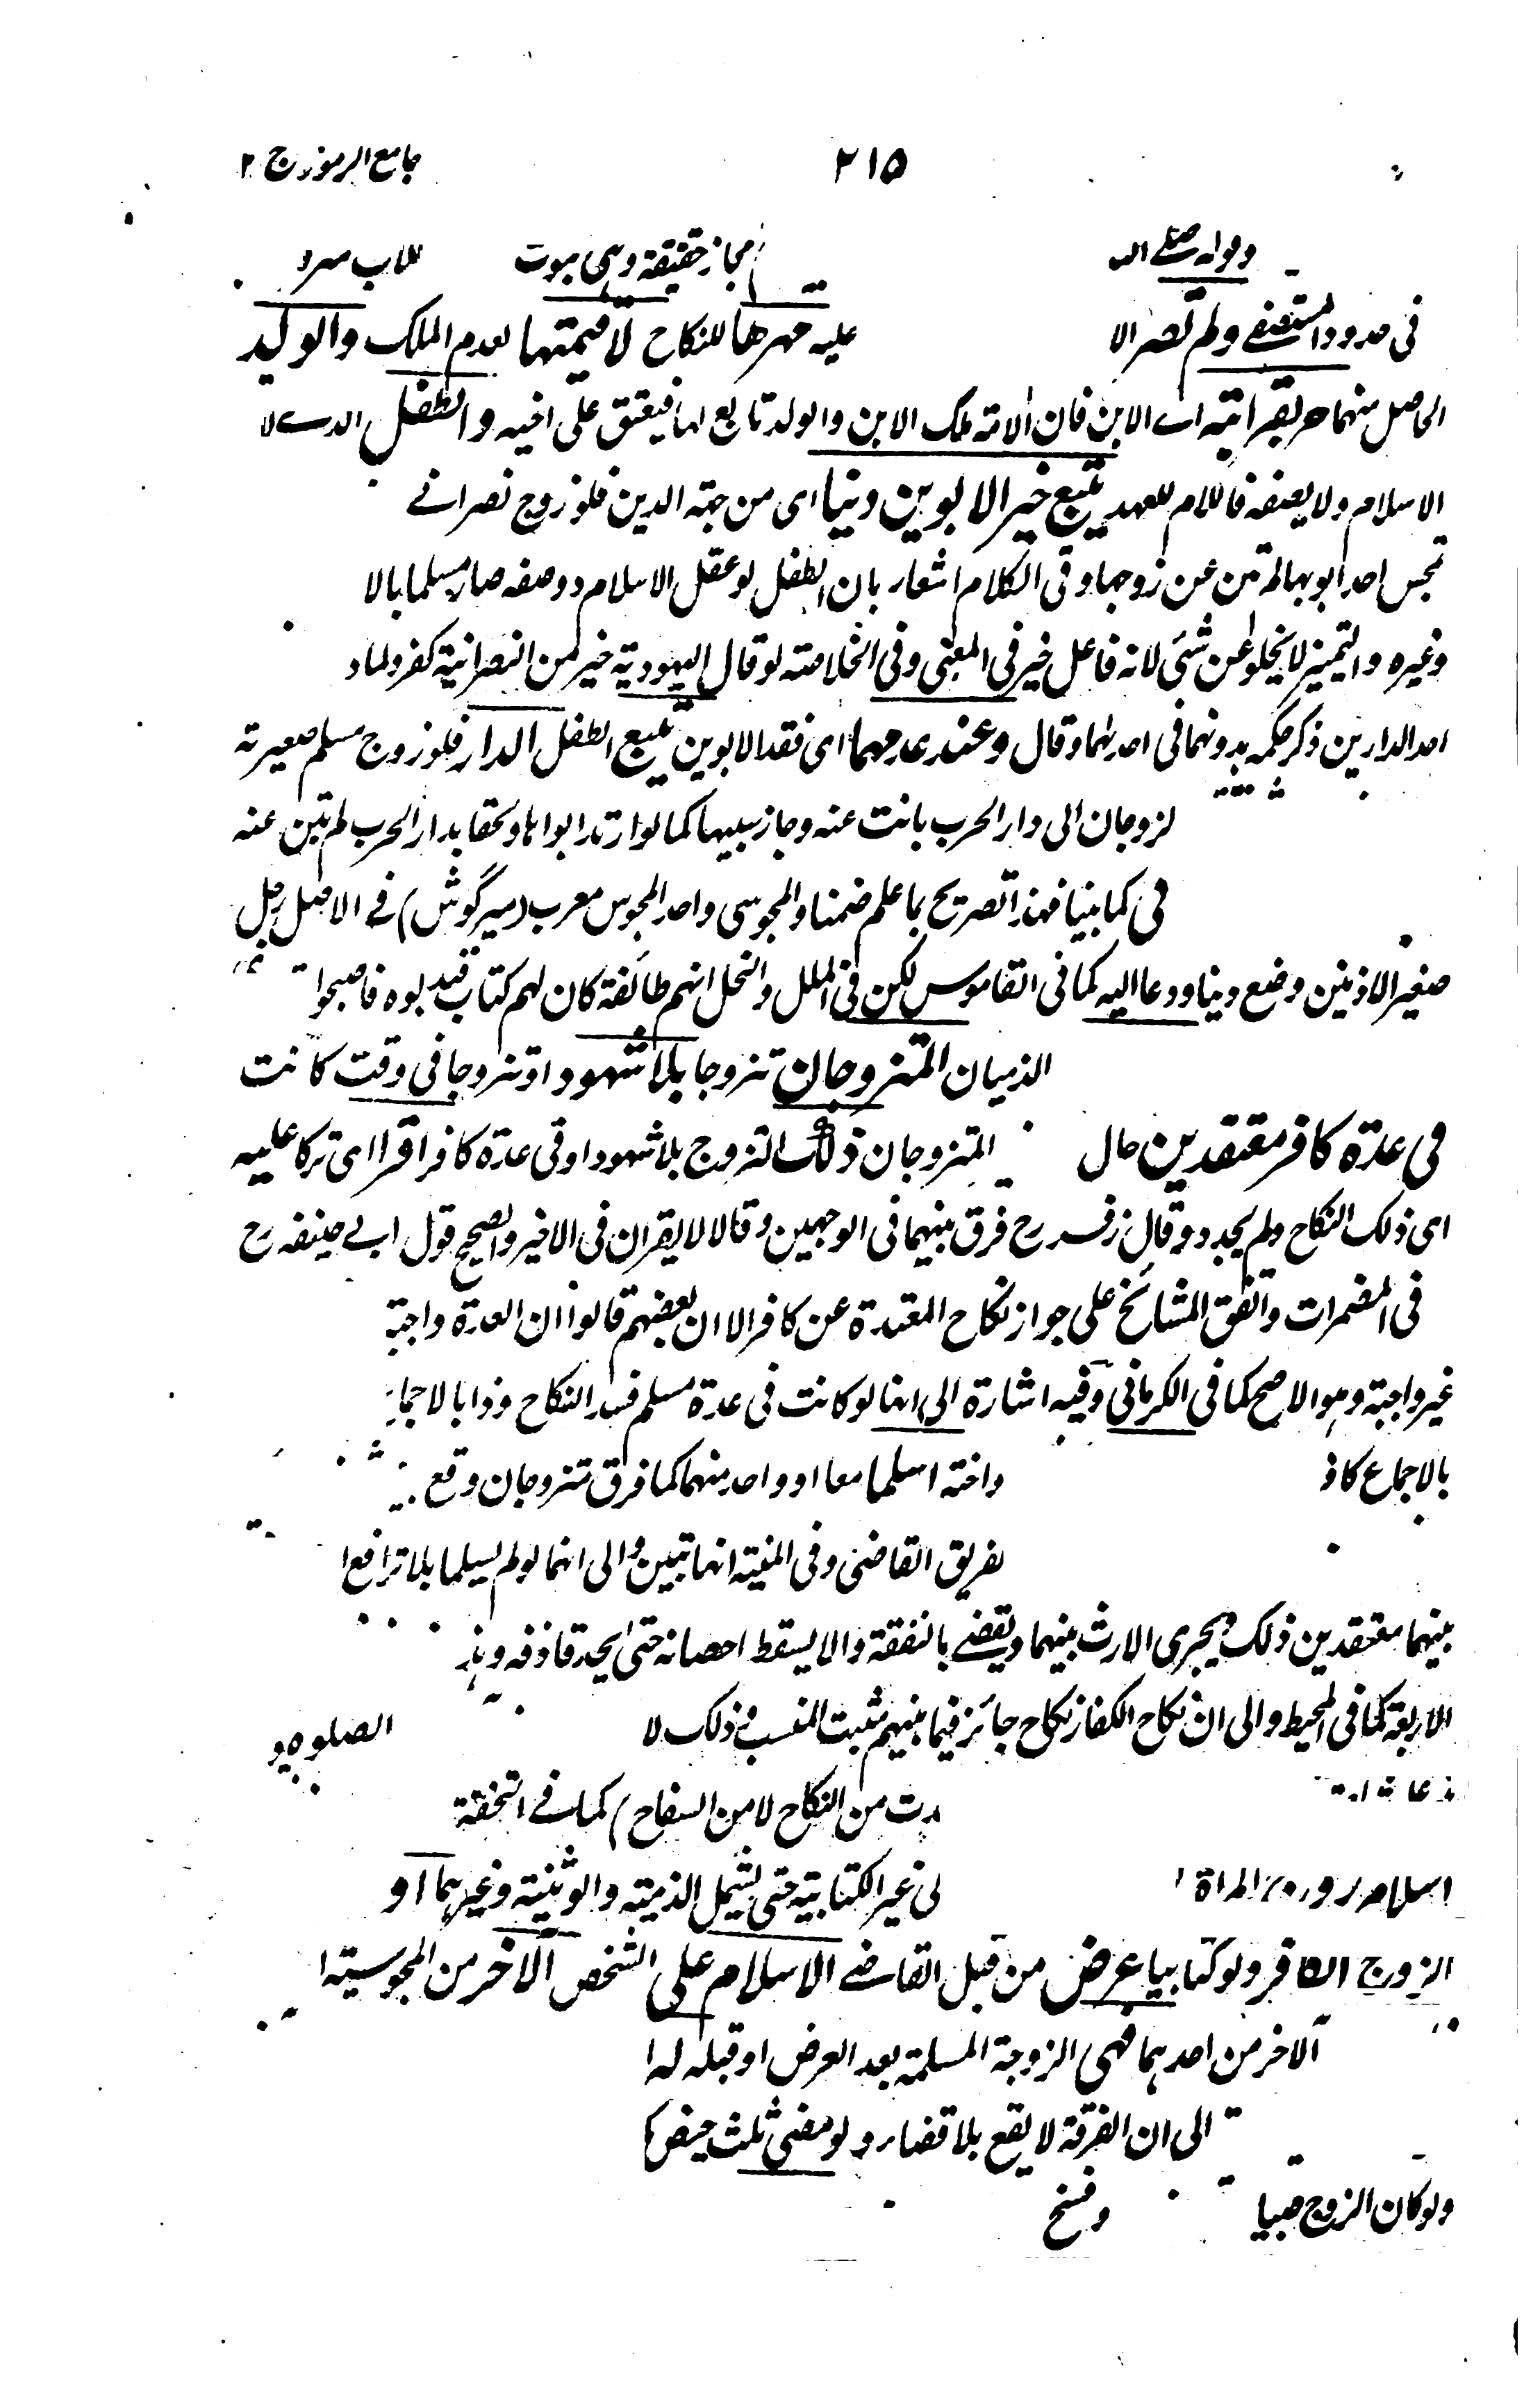 جامع الرموز ج ٢
٢١٥
وقوله صلى
مجاز حقيقة وهى للاب
فى حدود المستصفے ولم تصر
عليه مهرها للنكاح لا قيمتها لعدم الملك والولد
الحاصل منهما حر بقرابته اے الابن فان الامة ملك الابن والولد تابع لها فيعتق على اخيه والطفل الذے لا
الاسلام ولا يصفه فاللام للعهد يتبع خير الابوين دينا اى من جهة الدين فلو زوج نصرانے
تمجس احد ابويها لم تبن عن زوجها وفى الكلام اشعار بان الطفل لو عقل الاسلام ووصفه صار مسلما بالا
وغيره والتميز لا يخلو عن شئى لانه فاعل خير فى المعنى وفى الخلاصة لو قال اليهودية خير من النصرانية كفر ولما
احد الدارين ذكر حكمه بدونهما فى احدهما وقال وعند عدمهما اى فقد الابوين يتبع الطفل الدار فلو زوج مسلم صغيرته
لزوجان الى دار الحرب بانت عنه وجاز سبيها كما لو ارتد ابواها ولحقا بدار الحرب لم تبن عنه
فى كما بينا فهذا تصريح بما علم ضمنا والمجوسى واحد المجوس معرب (سيرگوش) فے الاصل رجل
صغير الاذنين وضع دينا ودعا اليه كما فى القاموس لكن فى الملل والنحل انهم طائفة كان لهم كتاب فبدلوه فاصبحوا
الذميان المتزوجان تزوجا بلا شهود او تزوجا فى وقت كانت
فى عدة كافر معتقدين حال المتزوجان ذلك التزوج بلا شهود او فى عدة كافر اقرا اى تركا عليه
اى ذلك النكاح ولم يجدد وقال زفر رح فرق بينهما فى الوجهين وقالا لا يقران فى الاخير والصحيح قول ابے حنيفه رح
فى المضمرات واتفق المشائخ على جواز نكاح المعتدة عن كافر الا ان بعضهم قالوا ان العدة واجبة
غير واجبة وهو الاصح كما فى الكرمانى وفيه اشارة الى انها لو كانت فى عدة مسلم فسد النكاح وذا بالاجما
بالاجماع واخته اسلما معا او واحد منهما كما فرق تتزوجان وقع
بفريق القاضى وفى المنية انها تبين والى انهما لو لم يسلما بلا ترافع
بينهما معتقدين ذلك ويجرى الارث بينهما ويقضے بالنفقة والا يسقط احصانه حتى يحد قاذفه
الاربعة كما فى المحيط والى ان نكاح الكفار نكاح جائز فيما بينهم مثبت النسب وذلك لا
الصلوة و
دت من النكاح لا من السفاح) كما فے التحفة
اسلام المراة
لى غير الكتابية حتى يشمل الذمية والوثنية وغيرهما او
الزوج الكافر ولو كتابيا عرض من قبل القاضے الاسلام على الشخص الآخر من المجوسية
الآخر من احدهما فهى الزوجة المسلمة بعد العرض او قبله
الى ان الفرقة لا يقع بلا قضاء ولو مضى ثلث حيض
ولو كان الزوج صبيا
وفسخ